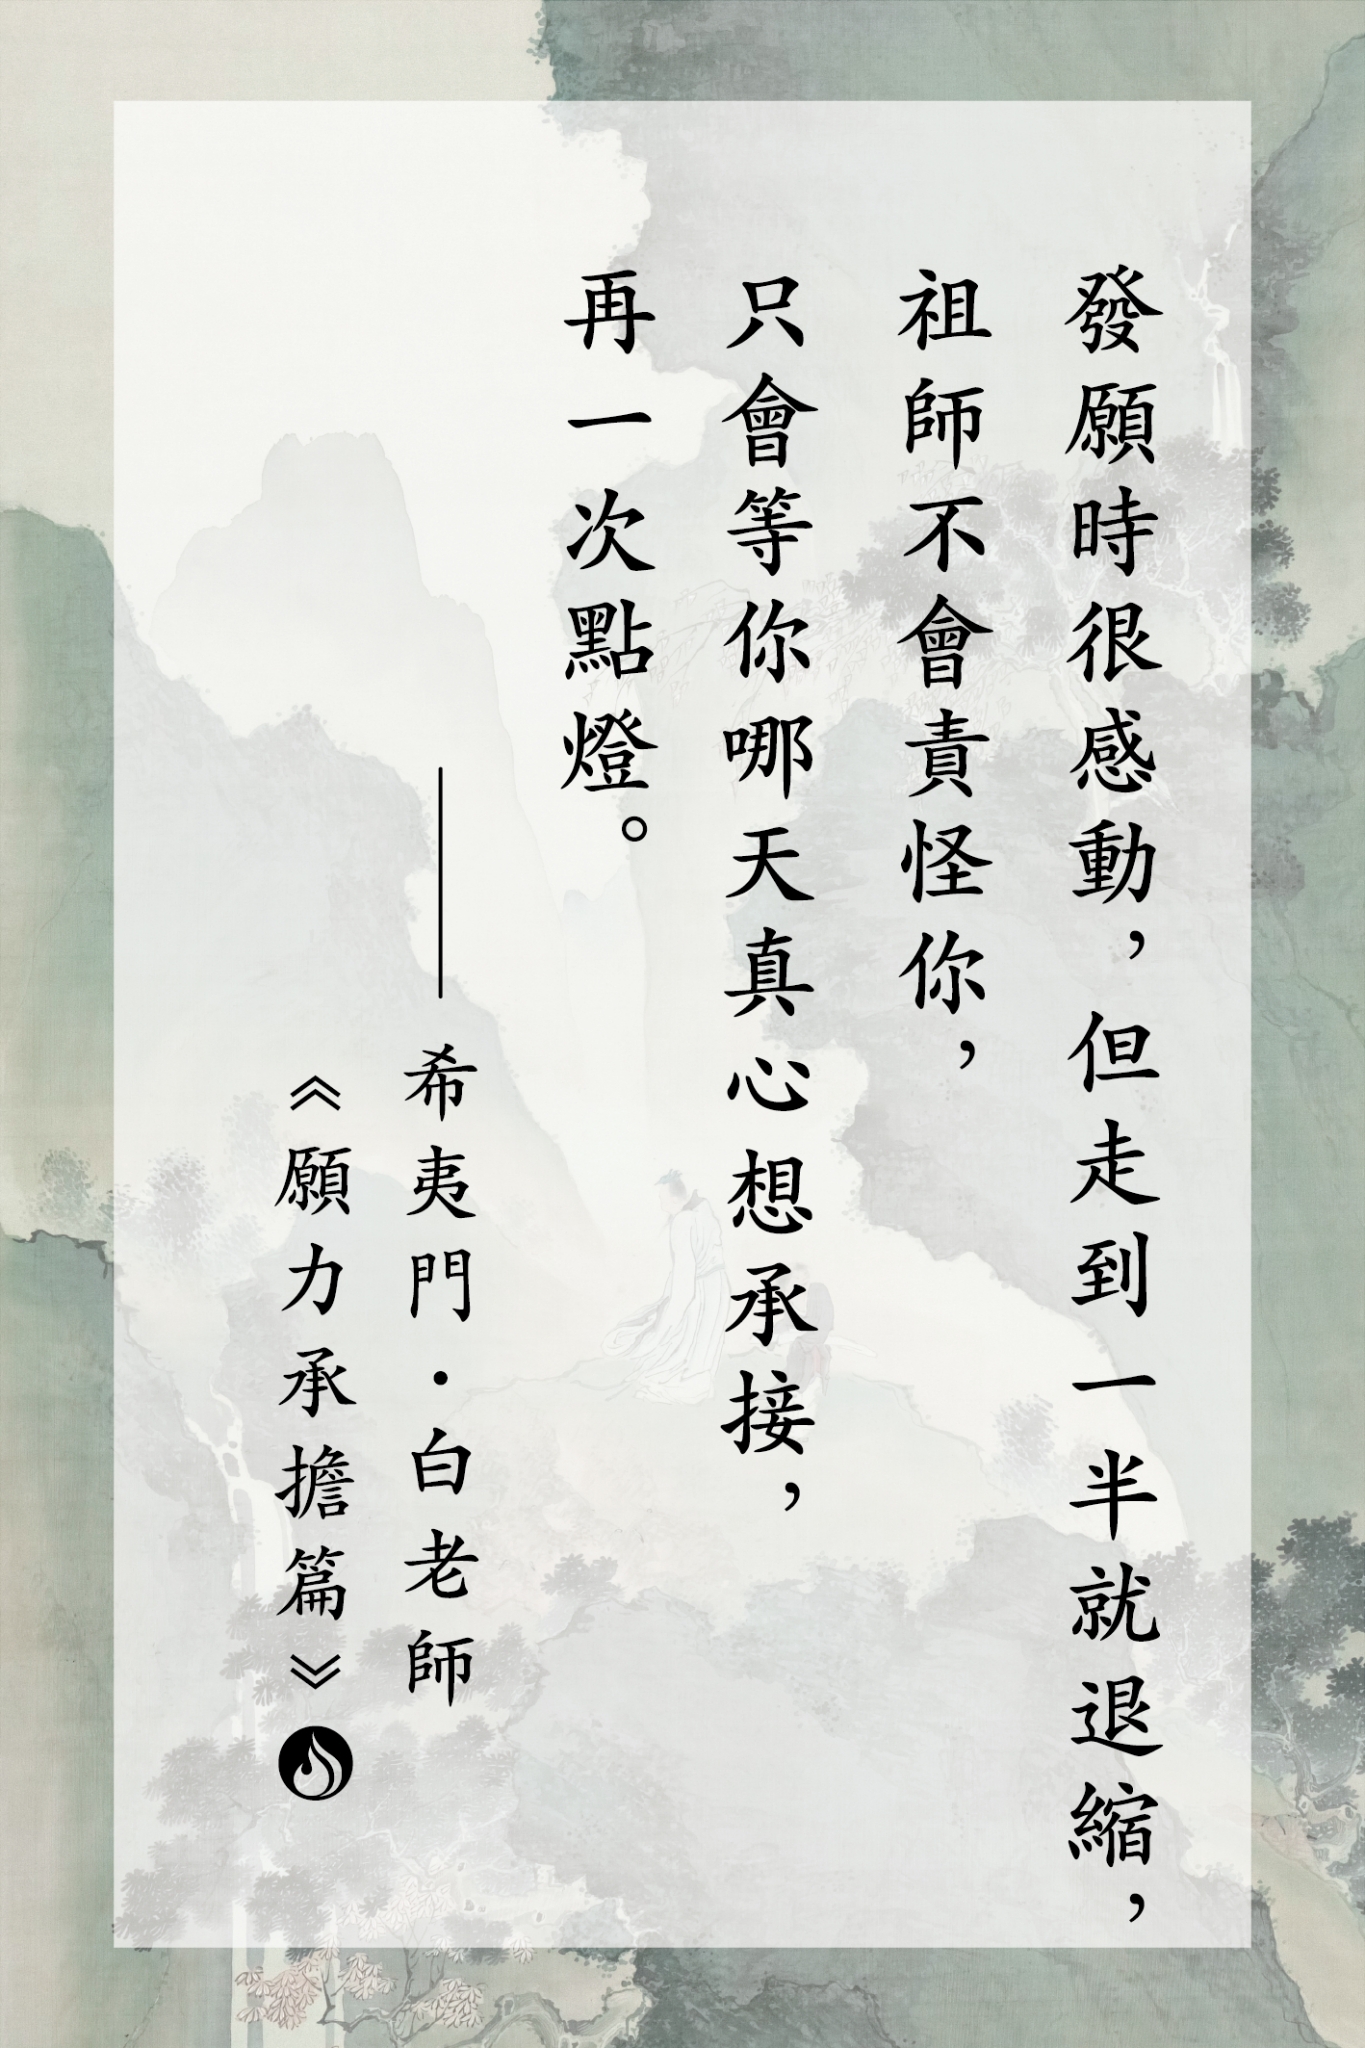 發願時很感動，但走到一半就退縮，
祖師不會責怪你，
只會等你哪天真心想承接，
再一次點燈。
——希夷門．白老師
《願力承擔篇》